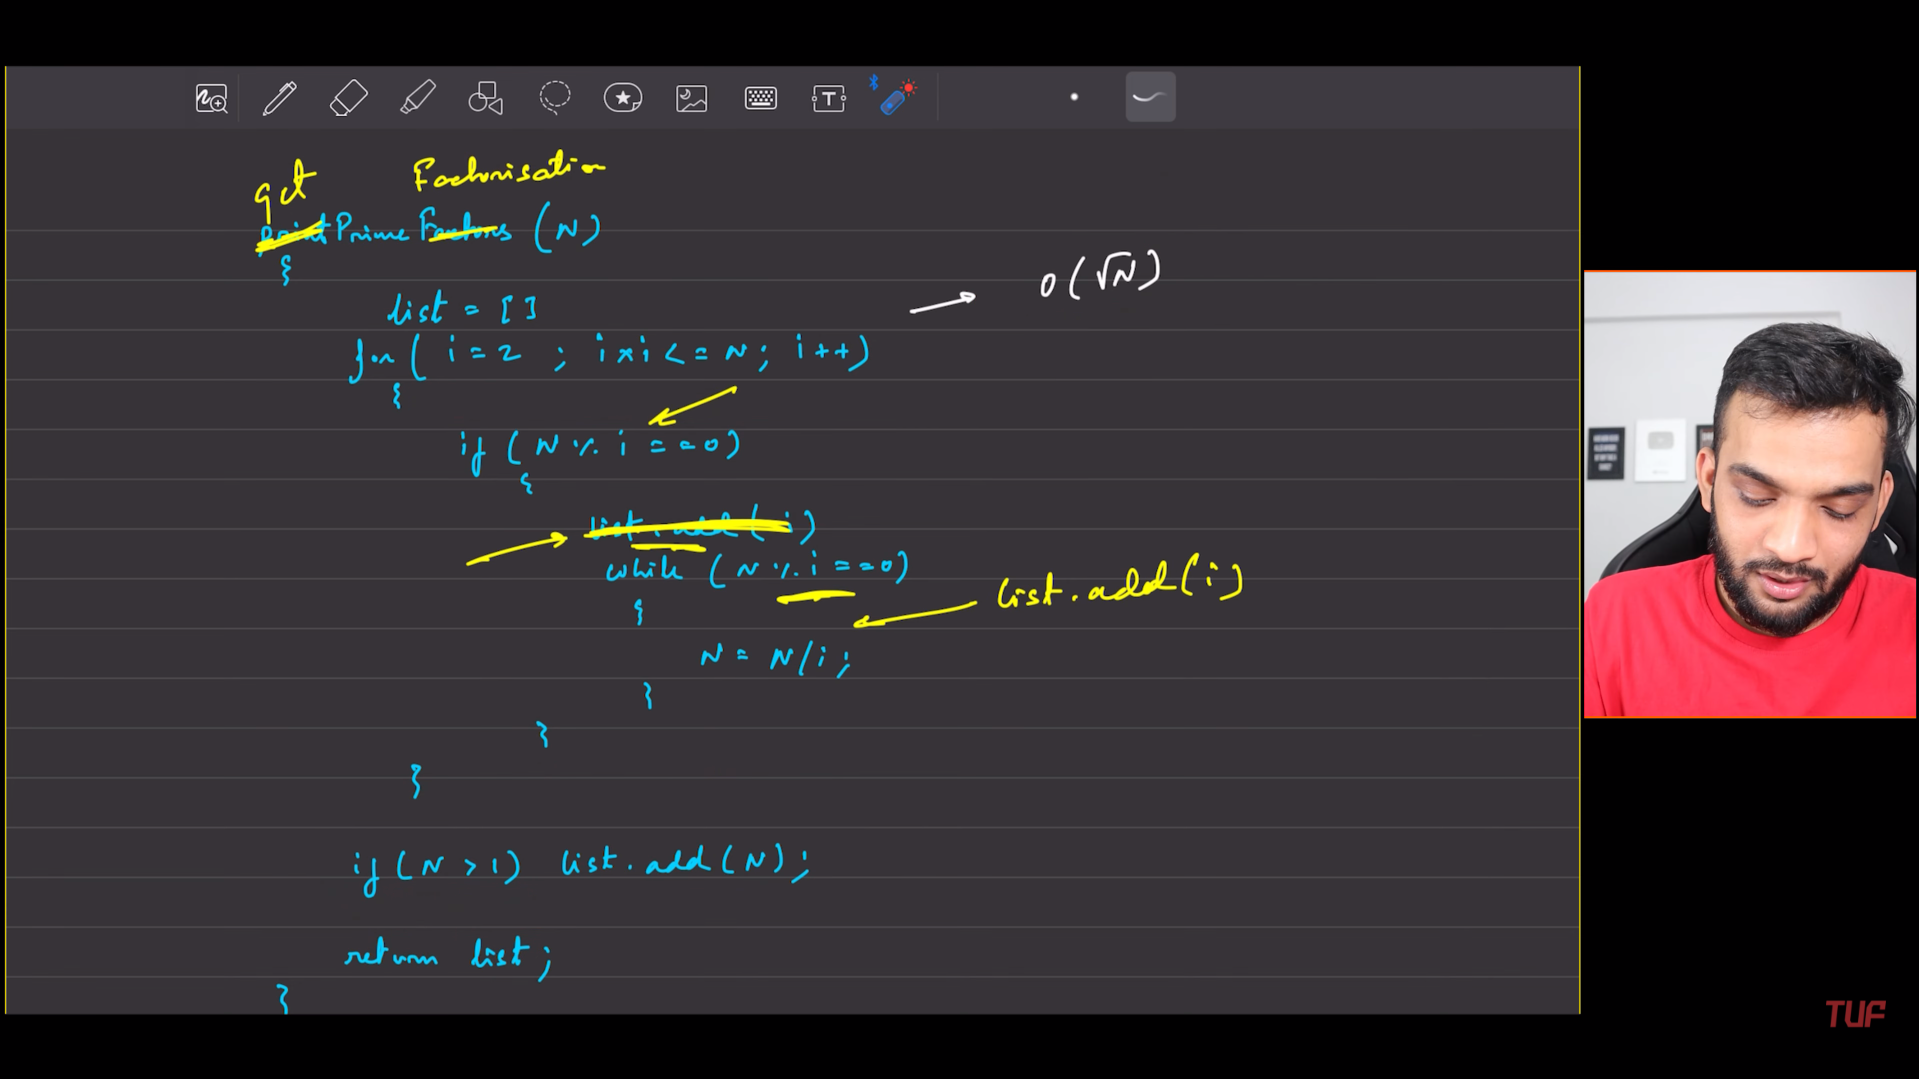 get Factorisation
print Prime Factors (N)
{
list = [ ]
O(√N)
for( i = 2 ; i × i <= N; i++)
{
if ( N % i == 0)
{
list.add(i)
while ( N % i == 0)
list.add(i)
{
N = N/i;
}
}
}
if (N > 1) list.add(N);
return list;
}
T
TUF